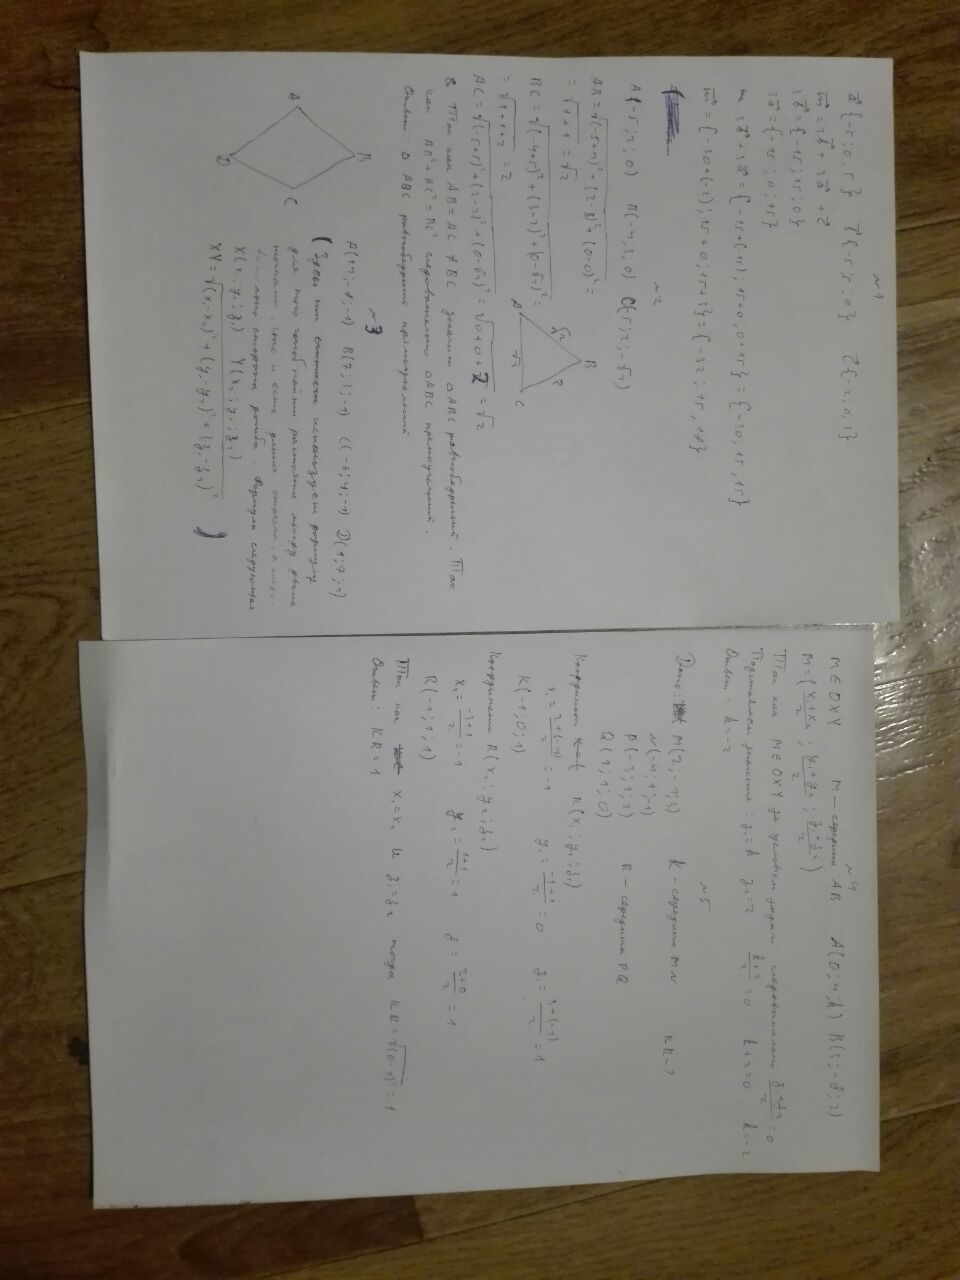 №1
a⃗ {-5; 0; 5} b⃗ {-5; 5; 0} c⃗ {-2; 0; 3}
m⃗ = 3b⃗ + 3a⃗ + c⃗
3b⃗ = {-15; 15; 0}
3a⃗ = {-15; 0; 15}
m = 3b⃗ + 3a⃗ = {-15+(-15); 15+0; 0+15} = {-30; 15; 15}
m⃗ = {-30+(-2); 15+0; 15+3} = {-32; 15; 18}
№2
A(-5; 2; 0) B(-4; 3; 0) C(-5; 2; -√2)
AB = √(-5+4)² + (2-3)² + (0-0)² =
= √1+1 = √2
BC = √(-4+5)² + (3-2)² + (0-√2)² =
= √1+1+2 = 2
AC = √(-5+5)² + (2-2)² + (0-√2)² = √0+0+2 = √2
A B C √2 2 √2
Так как AB = AC ≠ BC значит △ABC равнобедренный. Так
как AB² + AC² = BC² следовательно △ABC прямоугольный.
Ответ: △ ABC равнобедрен прямоугольный
№3
A B C D
A(14; -8; -1) B(7; 3; -1) C(-6; 4; -1) D(1; 7; -1)
(Здесь ты используем формулу
для того чтоб найти расстояние между двумя
точками, что и есть длина
сторона ромба. Формула следующая
X(x₁; y₁; z₁) Y(x₂; y₂; z₂)
XY = √(x₁-x₂)² + (y₁-y₂)² + (z₁-z₂)² )
№4
M ∈ OXY M – середина AB A(0; 4; k) B(3; -8; 2)
M = (x₁+x₂/2; y₁+y₂/2; z₁+z₂/2)
Так как M ∈ OXY за условием задачи следовательно z₁+z₂/2 = 0
Подставляем значения: z₁ = k z₂ = 2 k+2/2 = 0 k+2 = 0 k = -2
Ответ: k = -2
№5
Дано: M(2; -1; 3) K – середина MN KR – ?
N(-4; 1; -1)
P(-3; 1; 2) R – середина PQ
Q(1; 1; 0)
Координаты K(x₁; y₁; z₁)
x₁ = 2+(-4)/2 = -1 y₁ = -1+1/2 = 0 z₁ = 3+(-1)/2 = 1
K(-1; 0; 1)
Координаты R(x₂; y₂; z₂)
x₂ = -3+1/2 = -1 y₂ = 1+1/2 = 1 z = 2+0/2 = 1
R(-1; 1; 1)
Так как x₁ = x₂ и z₁ = z₂ тогда KR = √(0-1)² = 1
Ответ: KR = 1